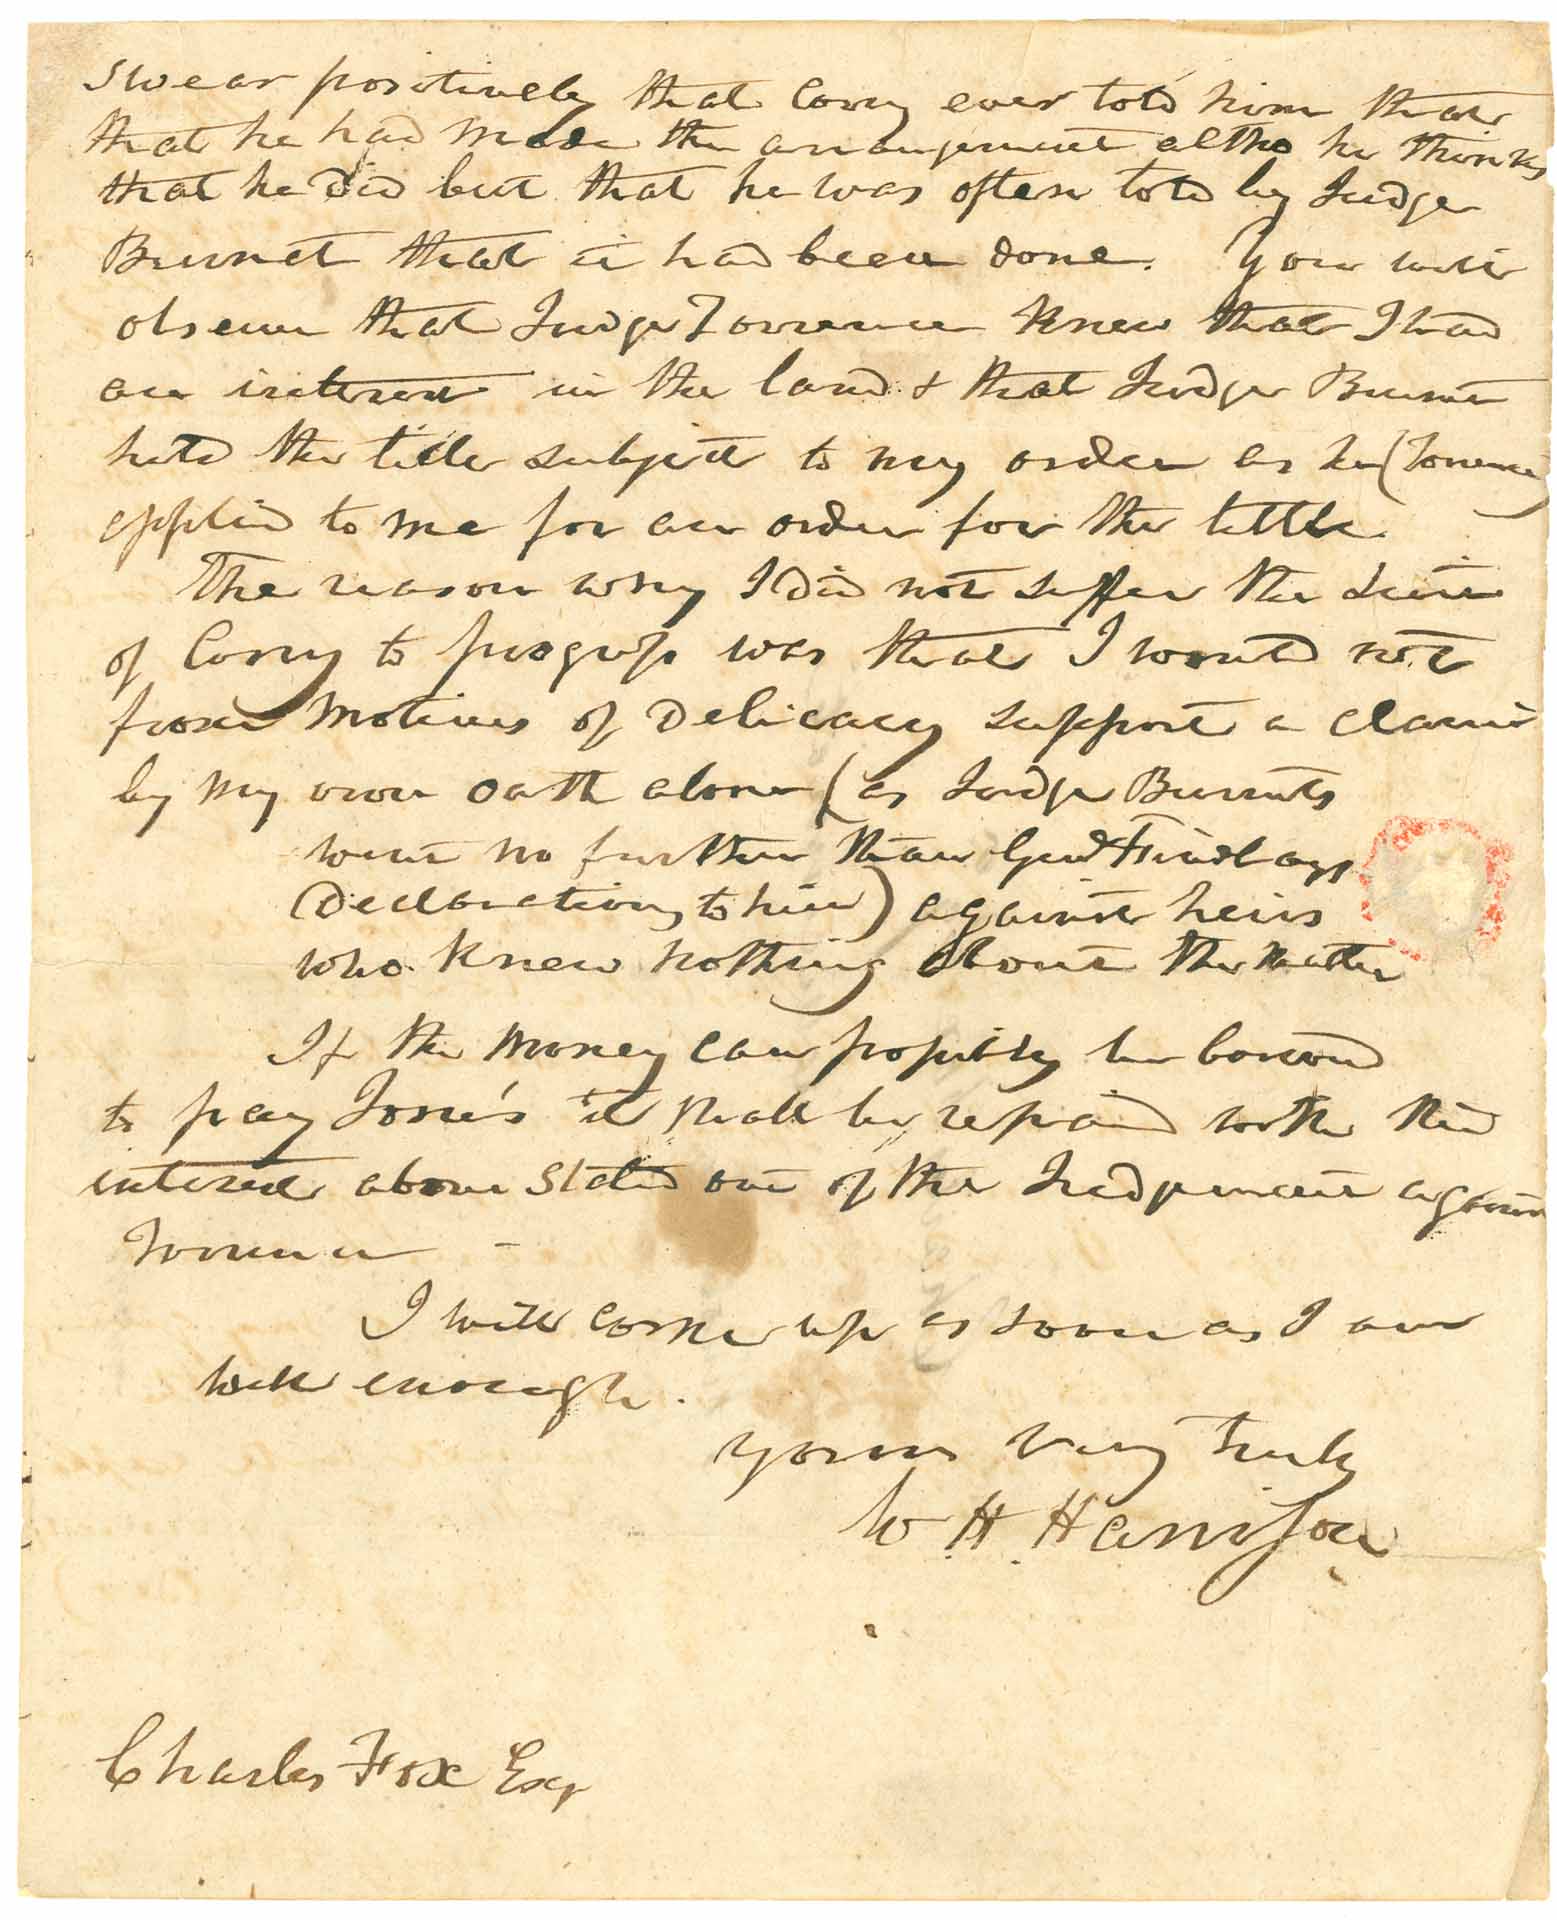 swear positively that Corry ever told him that
that he had made the arrangement altho he thinks
that he did but that he was often told by Judge
Burnet that it had been done. You will
observe that Judge Torrence knew that I had
an interest in the land & that Judge Burnet
held the title subject to my order as he (Torrence)
applied to me for an order for the tittle.
The reason why I did not suffer the suit
of Corry to progress was that I would not
from motives of Delicacy support a claim
by my own oath alone (as Judge Burnets
went no further than Genl Findlays
Declarations to him) against heirs
who knew nothing about the matter
If the money can possibly be borrowed
to pay Jone's it shall be repaid with the
interest above stated out of the Judgement against
Torrence -
I will come up as soon as I am
well enough.
Yours very truly
W. H. Harrison
Charles Fox Esqr